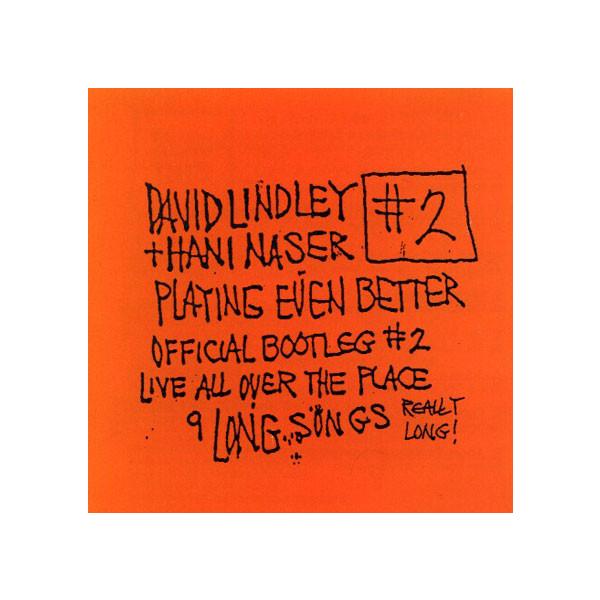 DAVID LINDLEY #2
+ HANI NASER
PLAYING EVEN BETTER
OFFICIAL BOOTLEG #2
LIVE ALL OVER THE PLACE
9 LONG SONGS REALLY
LONG!